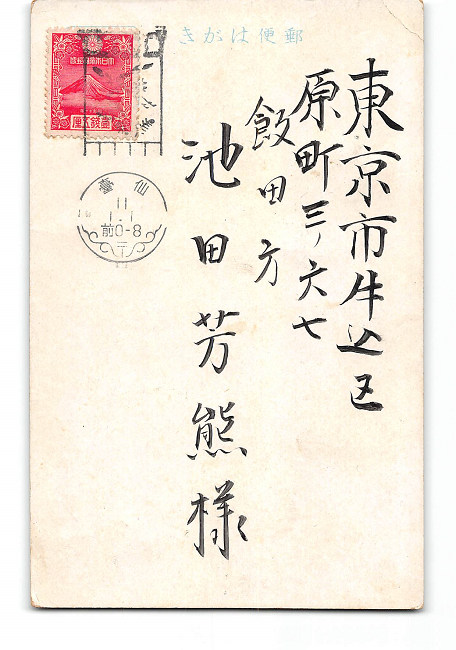 郵便はがき
東京市牛込区
原町三ノ六七
飯田方
池田芳熊様
仙臺
11
1.1
前0-8
壹錢五厘